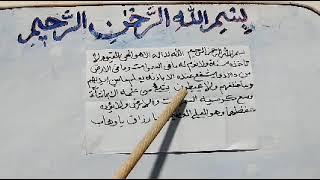 بسم الله الرحمن الرحيم
بسم الله الرحمن الرحيم الله لا اله الا هو الحي القيوم لا
تاخذه سنة ولا نوم له ما في السموات وما في الارض
من ذا الذي يشفع عنده الا باذنه يعلم ما بين ايديهم
وما خلفهم ولا يحيطون بشيء من علمه الا بما شاء
وسع كرسيه السموات والارض ولا يؤده
حفظهما وهو العلي العظيم يا رزاق يا وهاب